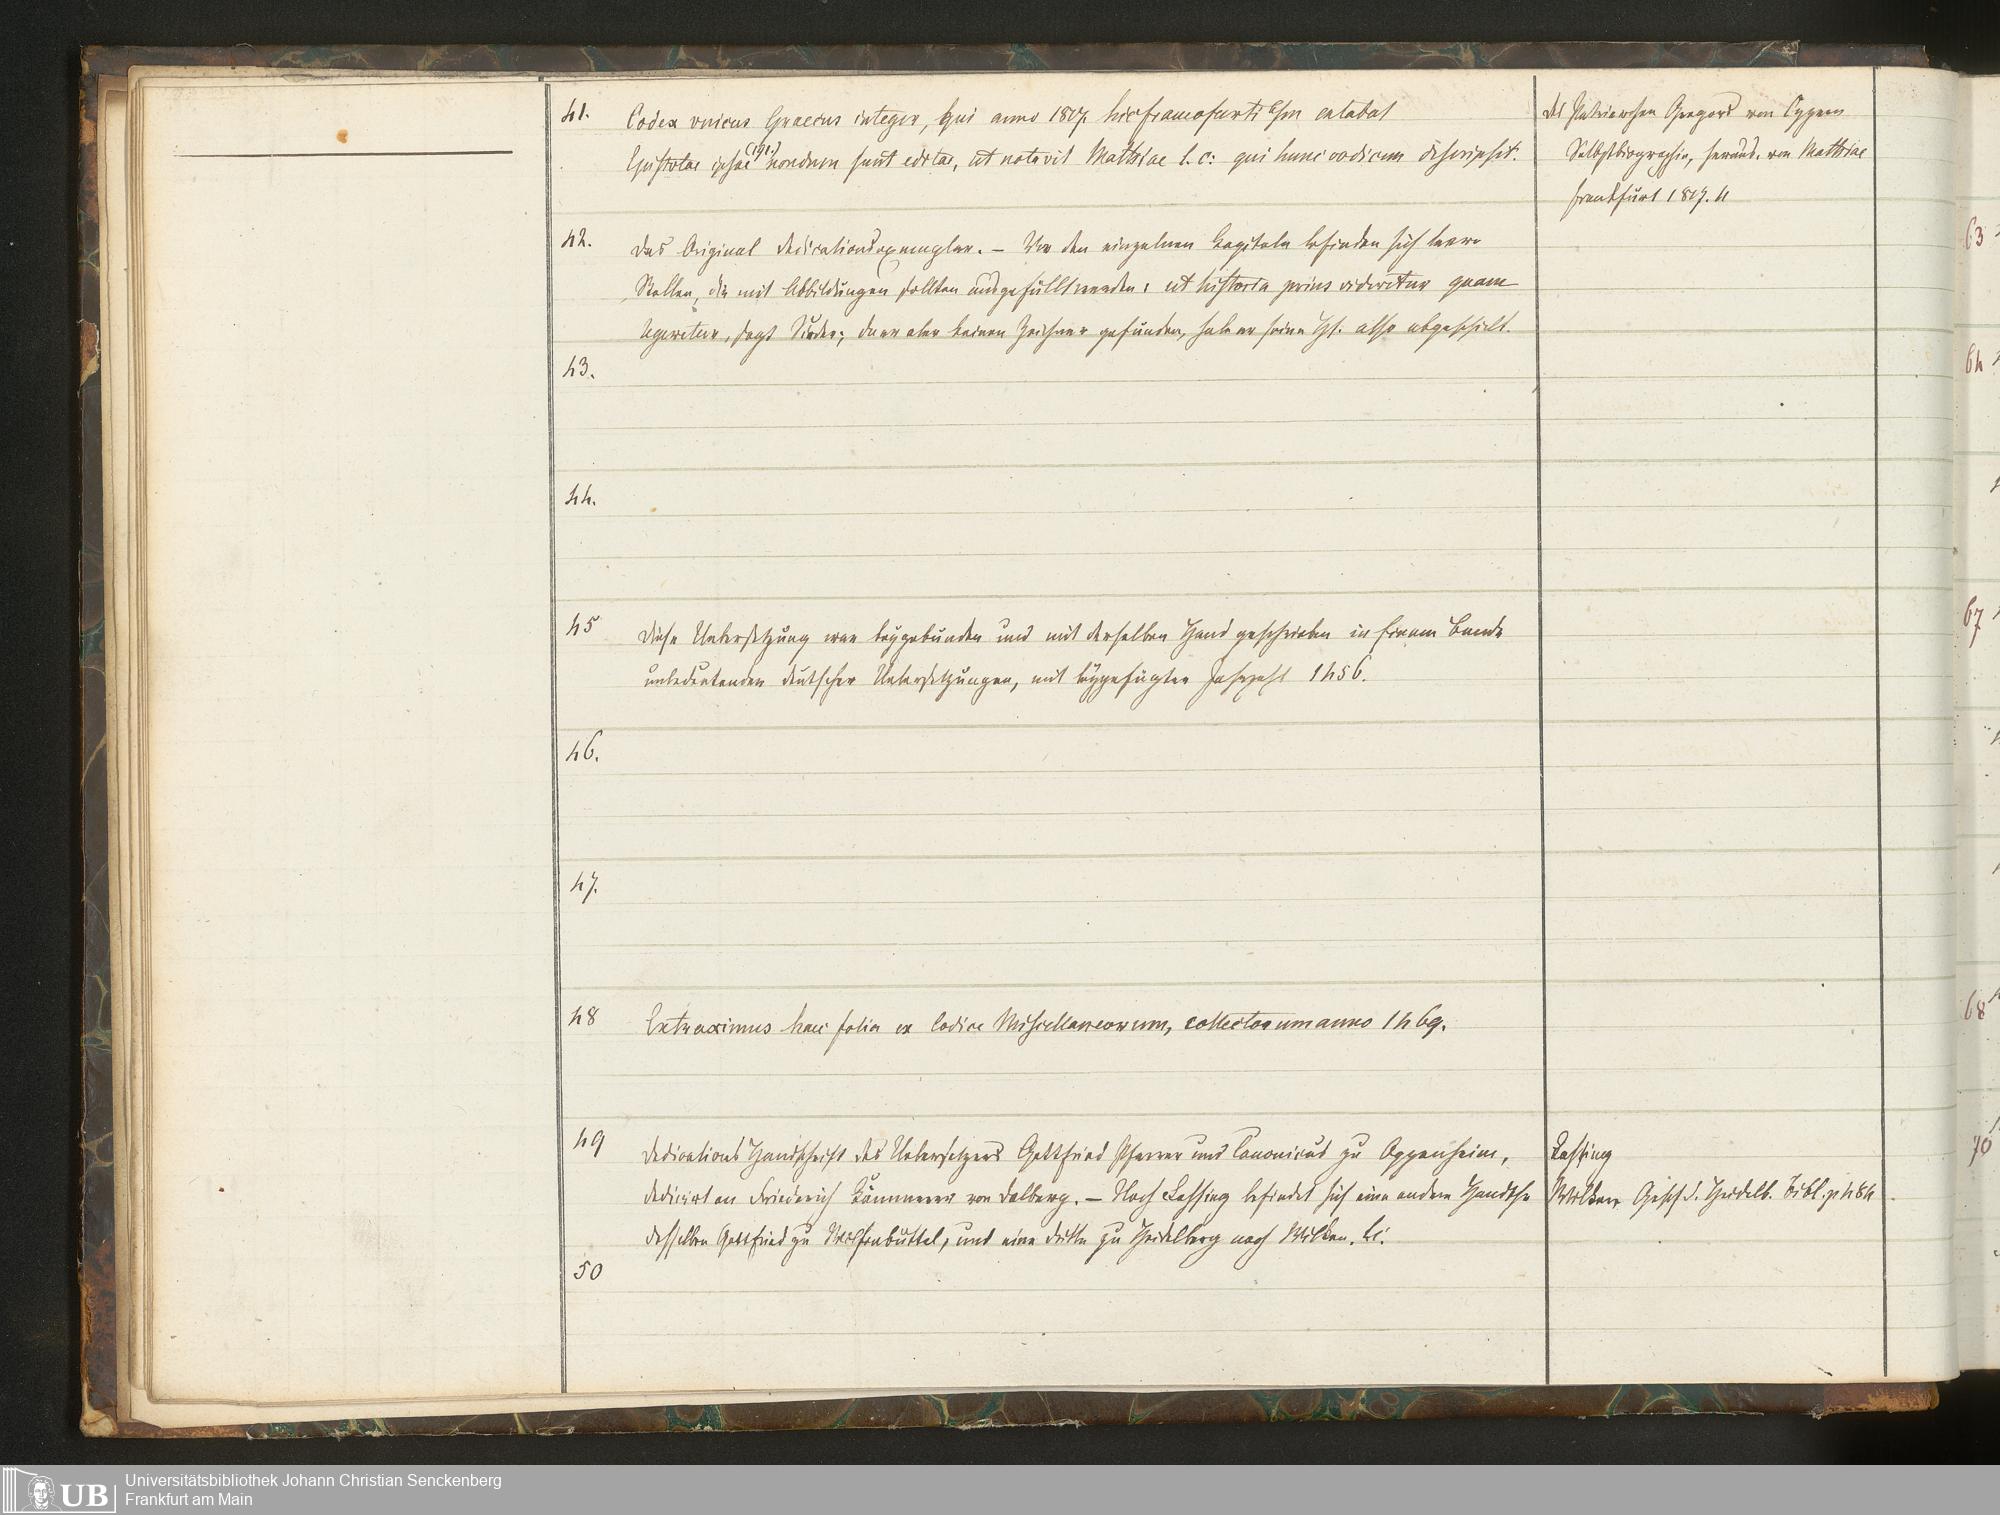 41. Codex unicus Graecus integer, qui anno 1817 hic francofurti a/m extabat
Epistolae ipsae (191.) nondum sunt editae, ut notavit Matthiae l. c: qui hunc codicem descripsit.
des Patriarchen Gregors von Cypern
Selbstbiographie, herausg. von Matthiae
Frankfurt 1817. 4
42. Das Original Dedicationsexemplar. — Vor den einzelnen Kapiteln befinden sich leere
Stellen, die mit Abbildungen sollten ausgefüllt werden: ut historia prius videretur quam
legeretur, sagt; da er aber keinen Zeichner gefunden, habe er seine Hs. also abgeschickt.
43.
44.
45 Diese Uebersetzung war beygebunden und mit derselben Hand geschrieben in einem Bande
unbedeutender deutscher Uebersetzungen, mit beygefügter Jahrzahl 1456.
46.
47.
48 Extraximus haec folia ex Codice Miscellaneorum, collectorum anno 1469.
49 Dedications Handschrift des Uebersetzers Gottfried Pfarrer und Canonicus zu Oppenheim,
dedicirt an Friederich Kämmerer von Dalberg. — Nach Lessing befindet sich eine andere Handschr
desselben Gottfried zu Wolfenbüttel, und eine dritte zu Heidelberg nach Wilken. l.c.
Lessing
Wilken, Gesch. d. Heidelb. Bibl. p 484
50
63
64
67
68
70
UB
Universitätsbibliothek Johann Christian Senckenberg
Frankfurt am Main